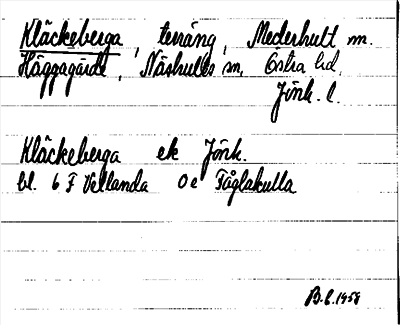 Kläckeberga, terräng, Mederhult m.
Häggagärde, Näshults sn, Östra hd,
Jönk. l.
Kläckeberga ek Jönk.
bl. 6 F Vetlanda 0 e Fåglakulla
B.E. 1958